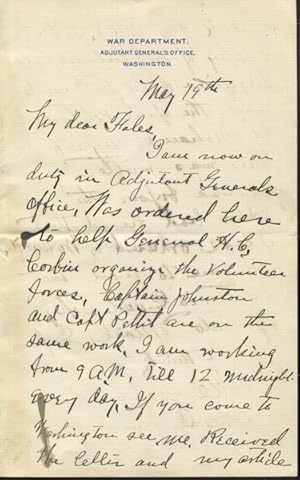 WAR DEPARTMENT,
ADJUTANT GENERAL'S OFFICE,
WASHINGTON.
May 19th
My dear Fales,
I am now on
duty in Adjutant Generals
Office, Was ordered here
to help General H.C.
Corbin organize the Volunteer
forces, Captain Johnston
and Capt Pettit are on the
same work. I am working
from 9 A.M. till 12 midnight
every day, If you come to
Washington see me. Received
the letter and my article